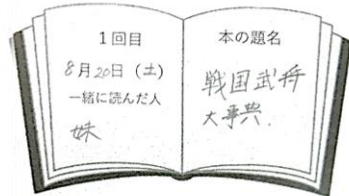 1回目
8月20日（土）
一緒に読んだ人
妹
本の題名
戦国武将
大事典.